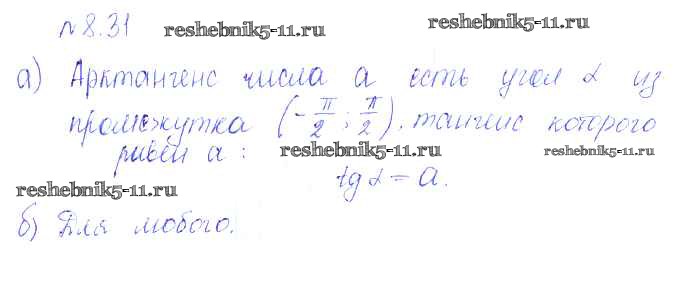 №8.31 reshebnik5-11.ru reshebnik5-11.ru
а) Арктангенс числа а есть угол α из
промежутка (-π/2; π/2), тангенс которого
равен а: reshebnik5-11.ru reshebnik5-11.ru
reshebnik5-11.ru tg α = a.
б) Для любого.